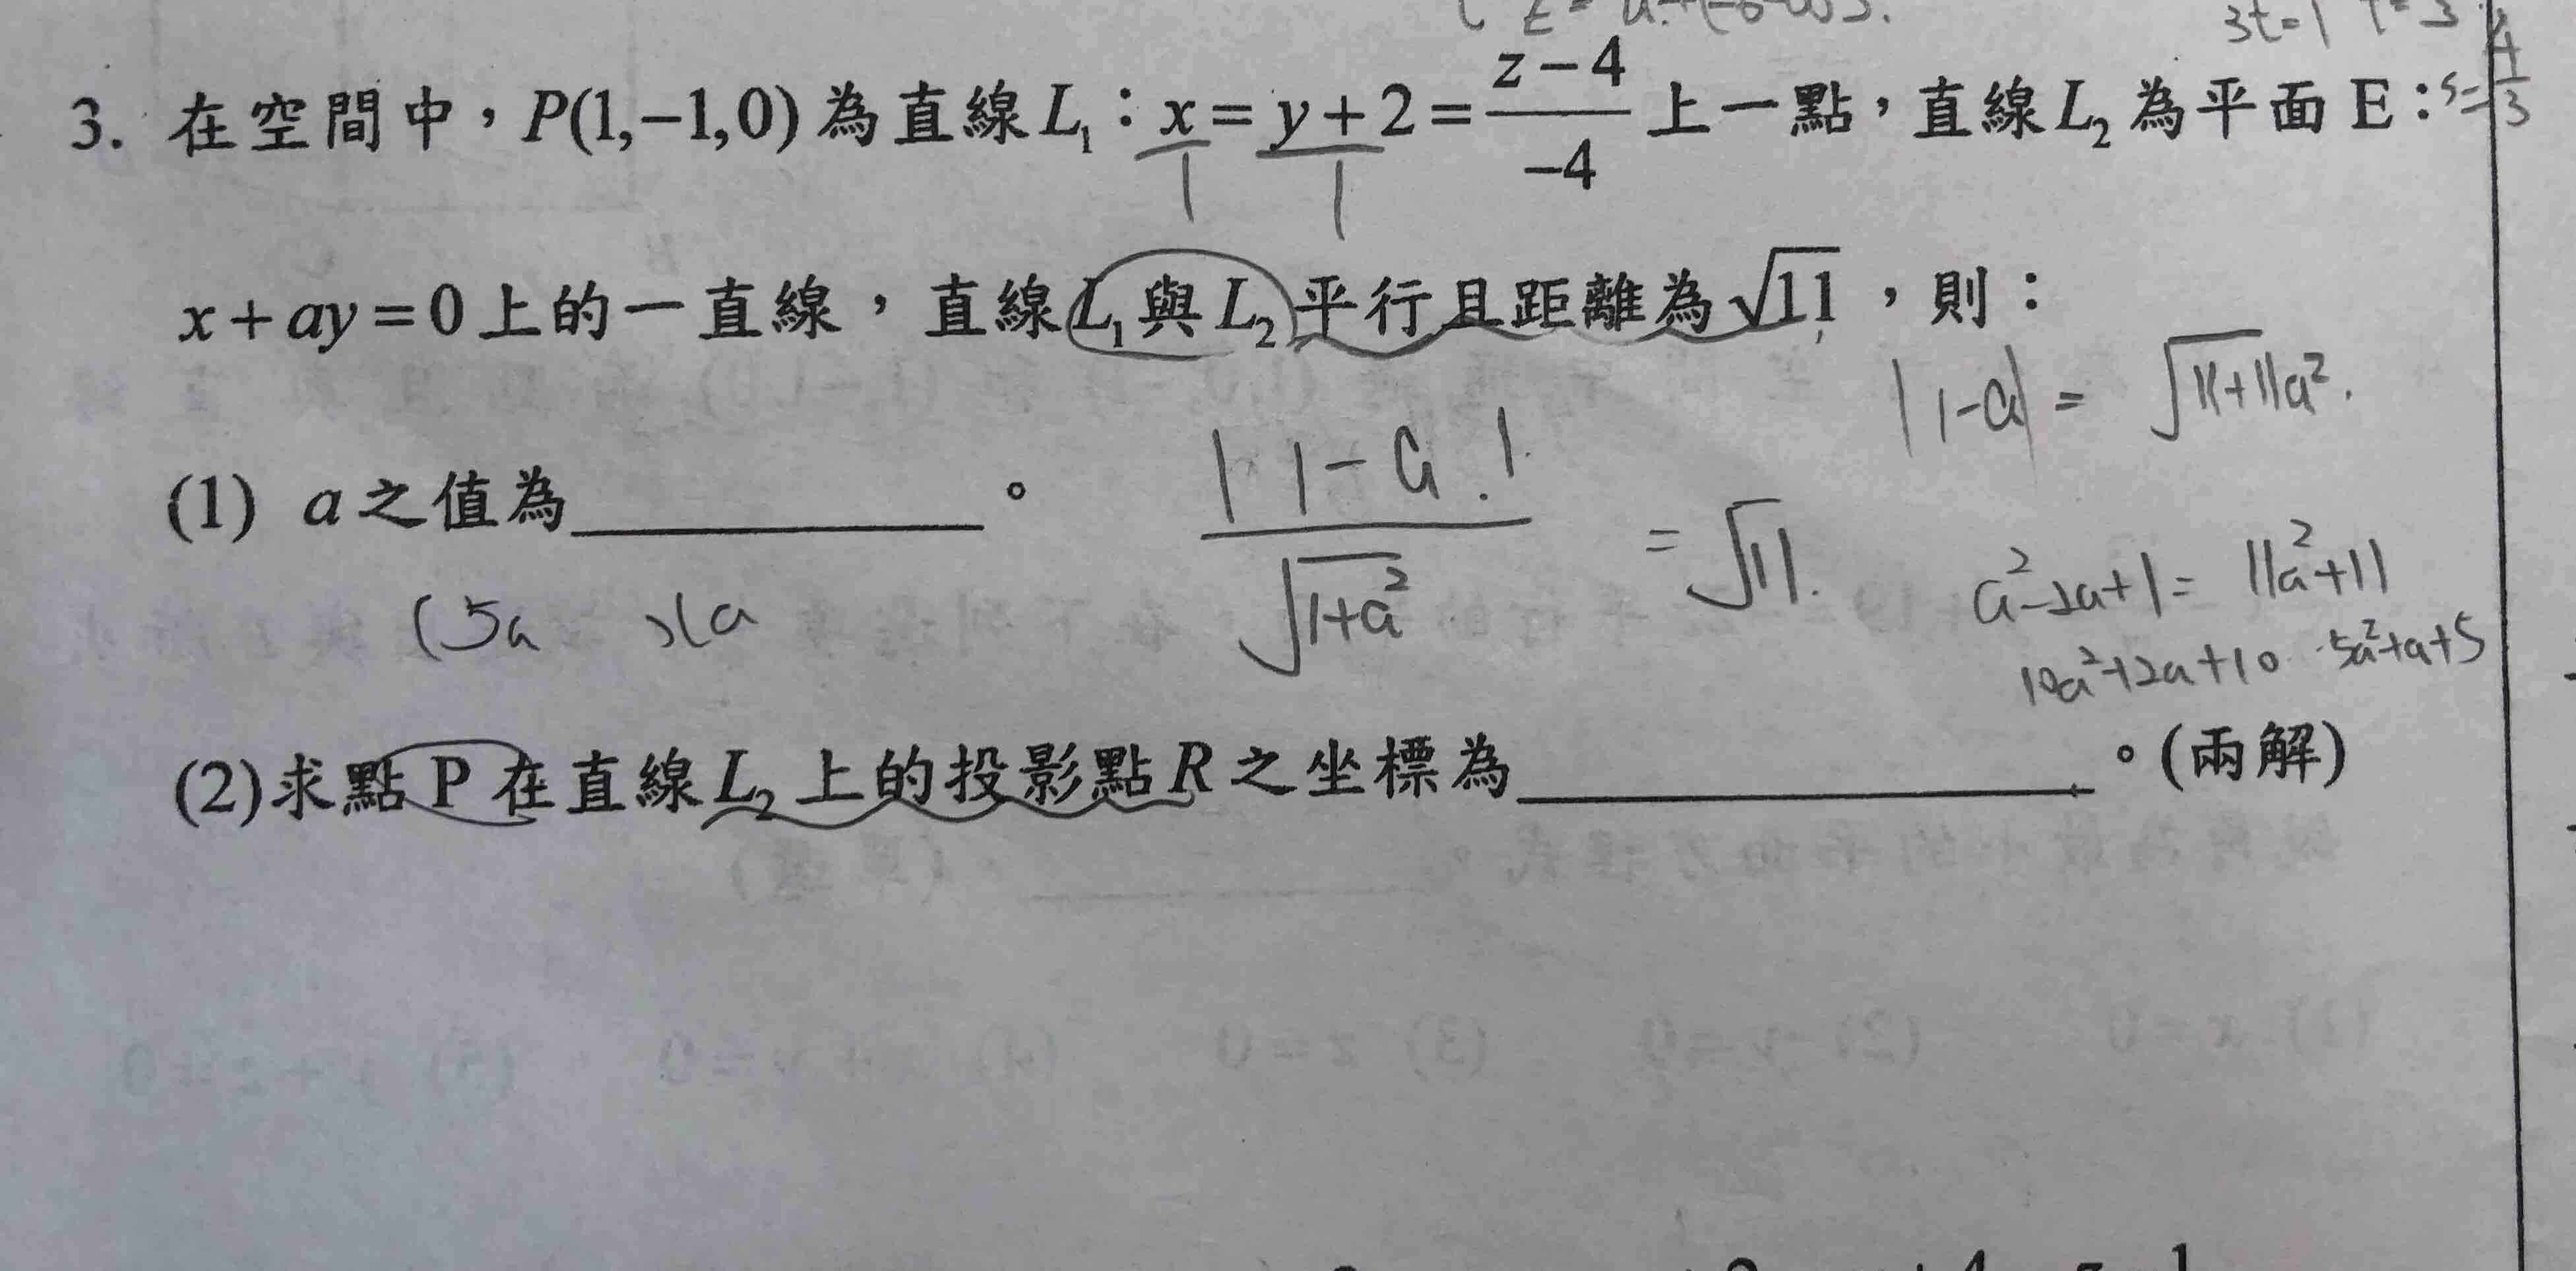 3t=1
3. 在空間中，P(1,−1,0) 為直線 L₁：x = y + 2 = (z − 4)/(−4) 上一點，直線 L₂ 為平面 E：
1 1
x + ay = 0 上的一直線，直線 L₁ 與 L₂ 平行且距離為 √11，則：
|1-a| = √(11+11a²).
(1) a 之值為＿＿＿＿＿＿。
|1-a.| / √(1+a²) = √11.
a²-2a+1 = 11a²+11
(5a )(a
10a²+2a+10 5a²+a+5
(2)求點 P 在直線 L₂ 上的投影點 R 之坐標為＿＿＿＿＿＿＿＿。(兩解)